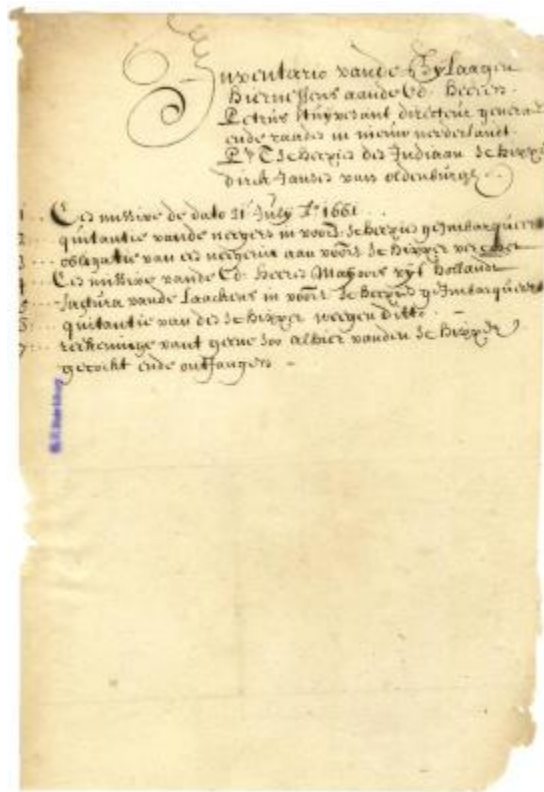 Inventario vande Bylaagen
hiernessens aande Ed. heeren
Petrus Stuyvesant directeur genera
ende raades in nieuw nederlandt.
Pr. T' scheepie den Indiaan schippr
dirck Janses van oldenburgh.
1 .. Een missive de dato 21 July Ao 1661.
2 ... quitantie vande negers in voors. scheepie geimbarqueert
3 ... obligatie van een negerin aan voors. schipper
4 .. Een missive vande Ed. heeren Mayoors uyt hollandt
5 .. factura vande Laackens in voors. scheepie geimbarqueert
6: ... quitantie van den schipper wegen ditto.
7: ... reekeninge vant gene soo alhier vanden schipper
gecocht ende ontfangen -